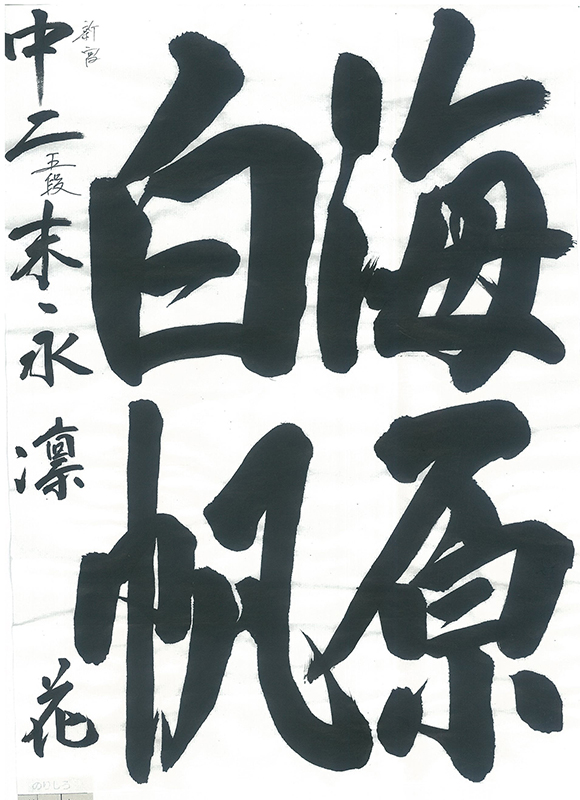 海原
白帆
新宮
中二 五段 末永 凛花
のりしろ